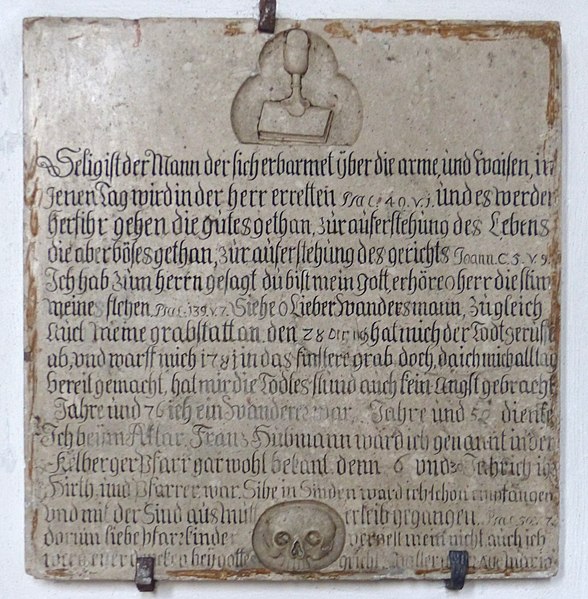 Selig ist der Mann der sich erbarmet über die arme, und Waisen, in
Jenen Tag wird in der herr erretten Psal. 40. v. 1. und es werden
herfihr gehen die gutes gethan, zur auferstehung des Lebens
die aber böses gethan, zur auferstehung des gerichts Joann. C. 5. v. 9.
Ich hab zum herrn gesagt du bist mein Gott, erhöre o herr die stim
meines flehen. Psal. 139. v. 7. Siehe o Lieber Wandersmann, zugleich
Ruct meine grabstatt an. den 28 hat mich der Todt gerisse
ab, und warff mich 1781 in das finstere grab. doch, da ich mich all tag
bereit gemacht, hat mir die Todtes stund auch kein Angst gebracht
Jahre und 76 ich ein Wanderer war, Jahre und 50 diente
Ich beim Altar, Franz Hubmann ward ich genannt in der
Kelberger Pfarr gar wohl bekant. denn 6 und 20 Jahr ich
Hirth und Pfarrer war. Sihe in Sinden ward ich schon empfangen
und mit der Sind aus mut erleib gegangen. Psal. 50. v. 7.
darum liebe Pfarrkinder vergest mein nicht auch ich
bey gottes